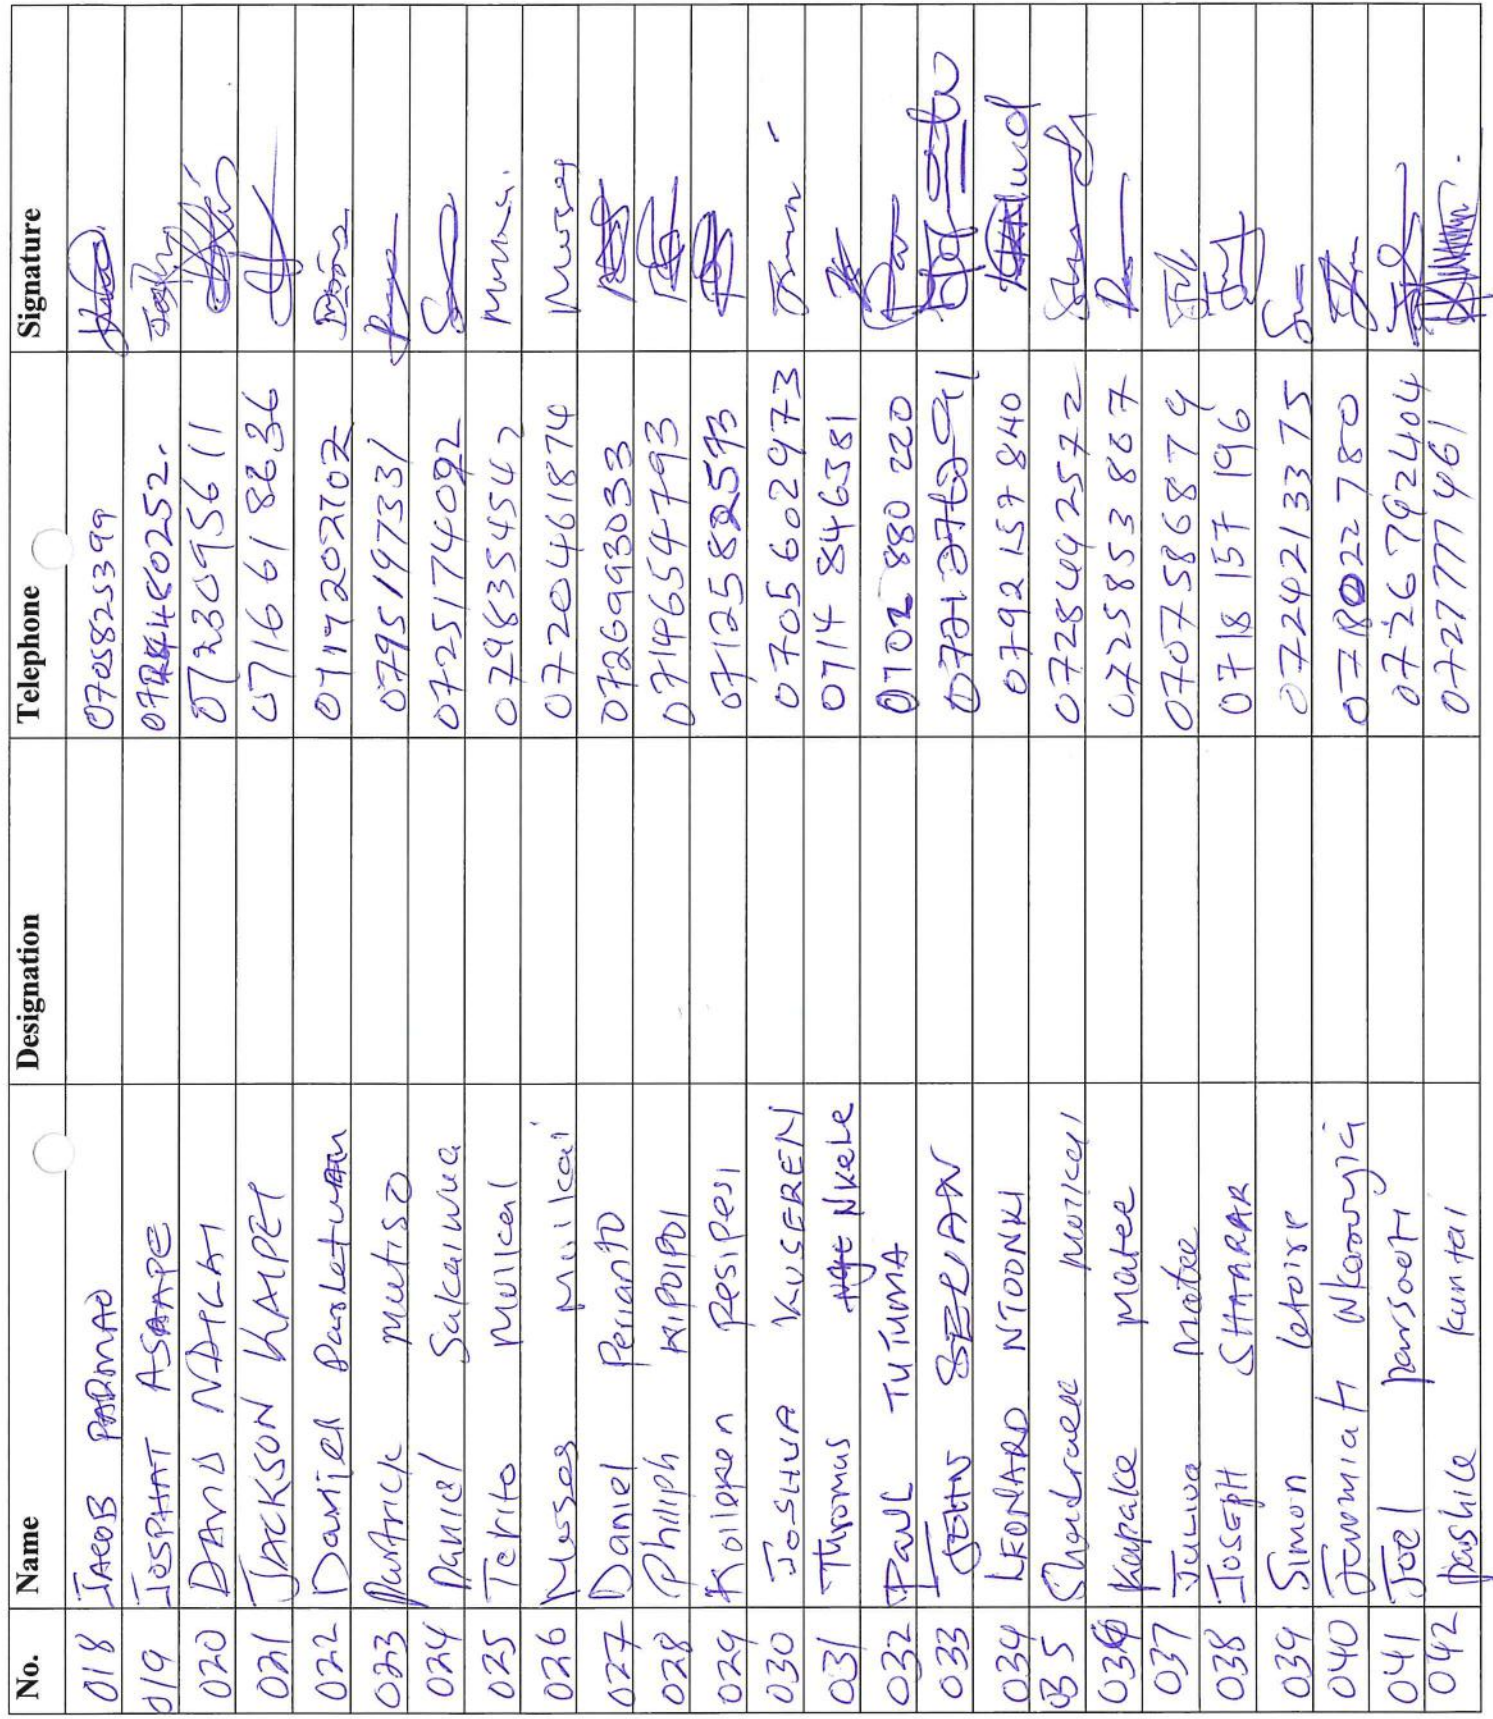 No. Name Designation Telephone Signature
018 JACOB PARMAO 0705825399
019 JOSPHAT ASAAPE 0724480252. Josphy
020 DAVID NDILAI 0723095611
021 JACKSON KAIPEI 0716618636
022 Daniel Parletuan 0117202702
023 Patrick Mutiso 0795197331
024 Daniel Sakaiwua 0725174092
025 Terito Muikai 0798354542 Musi.
026 Moses Muikai 0720461874 Moses
027 Daniel Perianto 0726993033
028 Philiph KIPOIPOI 0714654793
029 Koileken Pesipesi 0711258257
030 JOSHUA KUSEREN 0705602973
031 Thromus Nkele 0714 846381
032 Paul TUTUMA 0102 880 220
033 JOHN SEEYAN
034 LEONARD NTOONKI 0792 157 840
035 Shadrack Muikai 0728492572
036 Kapake Matee 0725853807
037 Julius Matee 0707586879
038 JOSEPH SHARRAR 0718 157 196
039 Simon letoire 07224213375
040 Jeremiah Nkoonyia 0718022780
041 Joel parsooti 0726792404
042 pashile kuntai 0727777461